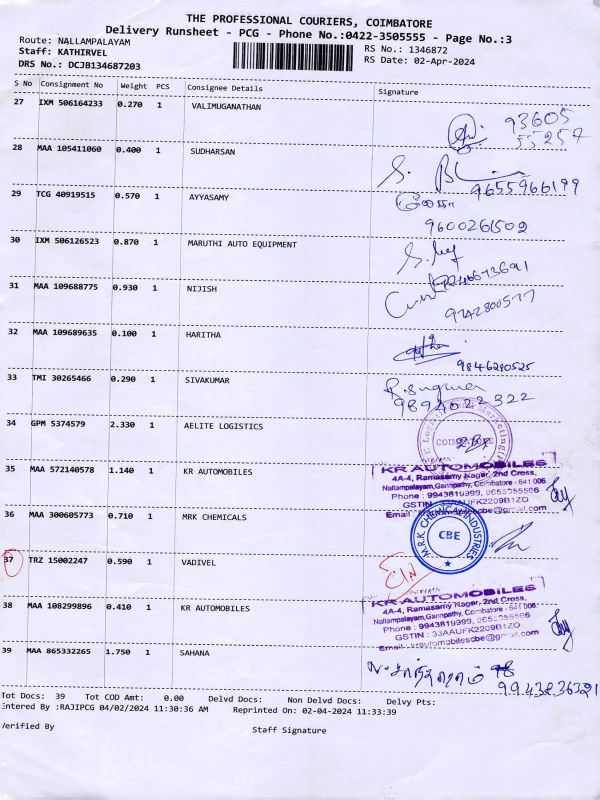 THE PROFESSIONAL COURIERS, COIMBATORE
Delivery Runsheet - PCG - Phone No.:0422-3505555 - Page No.:3
Route: NALLAMPALAYAM
Staff: KATHIRVEL
DRS No.: DCJB134687203
RS No.: 1346872
RS Date: 02-Apr-2024
S No Consignment No Weight PCS Consignee Details Signature
27 IXM 506164233 0.270 1 VALIMUGANATHAN
93605
55257
28 MAA 105411060 0.400 1 SUDHARSAN
9655966199
29 TCG 40919515 0.570 1 AYYASAMY
9600261502
30 IXM 506126523 0.870 1 MARUTHI AUTO EQUIPMENT
31 MAA 109688775 0.930 1 NIJISH
9742800577
32 MAA 109689635 0.100 1 HARITHA
9846280525
33 TMI 30265466 0.290 1 SIVAKUMAR
9894022322
34 GPM 5374579 2.330 1 AELITE LOGISTICS
35 MAA 572140578 1.140 1 KR AUTOMOBILES
KR AUTOMOBILES
4A-4, Ramasamy Nagar, 2nd Cross,
Nallampalayam, Ganapathy, Coimbatore - 641 006.
Phone : 9943819999,
GSTIN : 33AAUFK2209B1ZO
36 MAA 300605773 0.710 1 MRK CHEMICALS
M.R.K. CHEMICAL INDUSTRIES
CBE
37 TRZ 15002247 0.590 1 VADIVEL
38 MAA 108299896 0.410 1 KR AUTOMOBILES
KR AUTOMOBILES
4A-4, Ramasamy Nager, 2nd Cross,
Nallampalayam, Ganapathy, Coimbatore - 641 006.
Phone : 9943819999,
GSTIN : 33AAUFK2209B1ZO
Email : krautomobilescbe@gmail.com
39 MAA 865332265 1.750 1 SAHANA
Tot Docs: 39 Tot COD Amt: 0.00 Delvd Docs: Non Delvd Docs: Delvy Pts:
Entered By :RAJIPCG 04/02/2024 11:30:36 AM Reprinted On: 02-04-2024 11:33:39
Verified By
Staff Signature